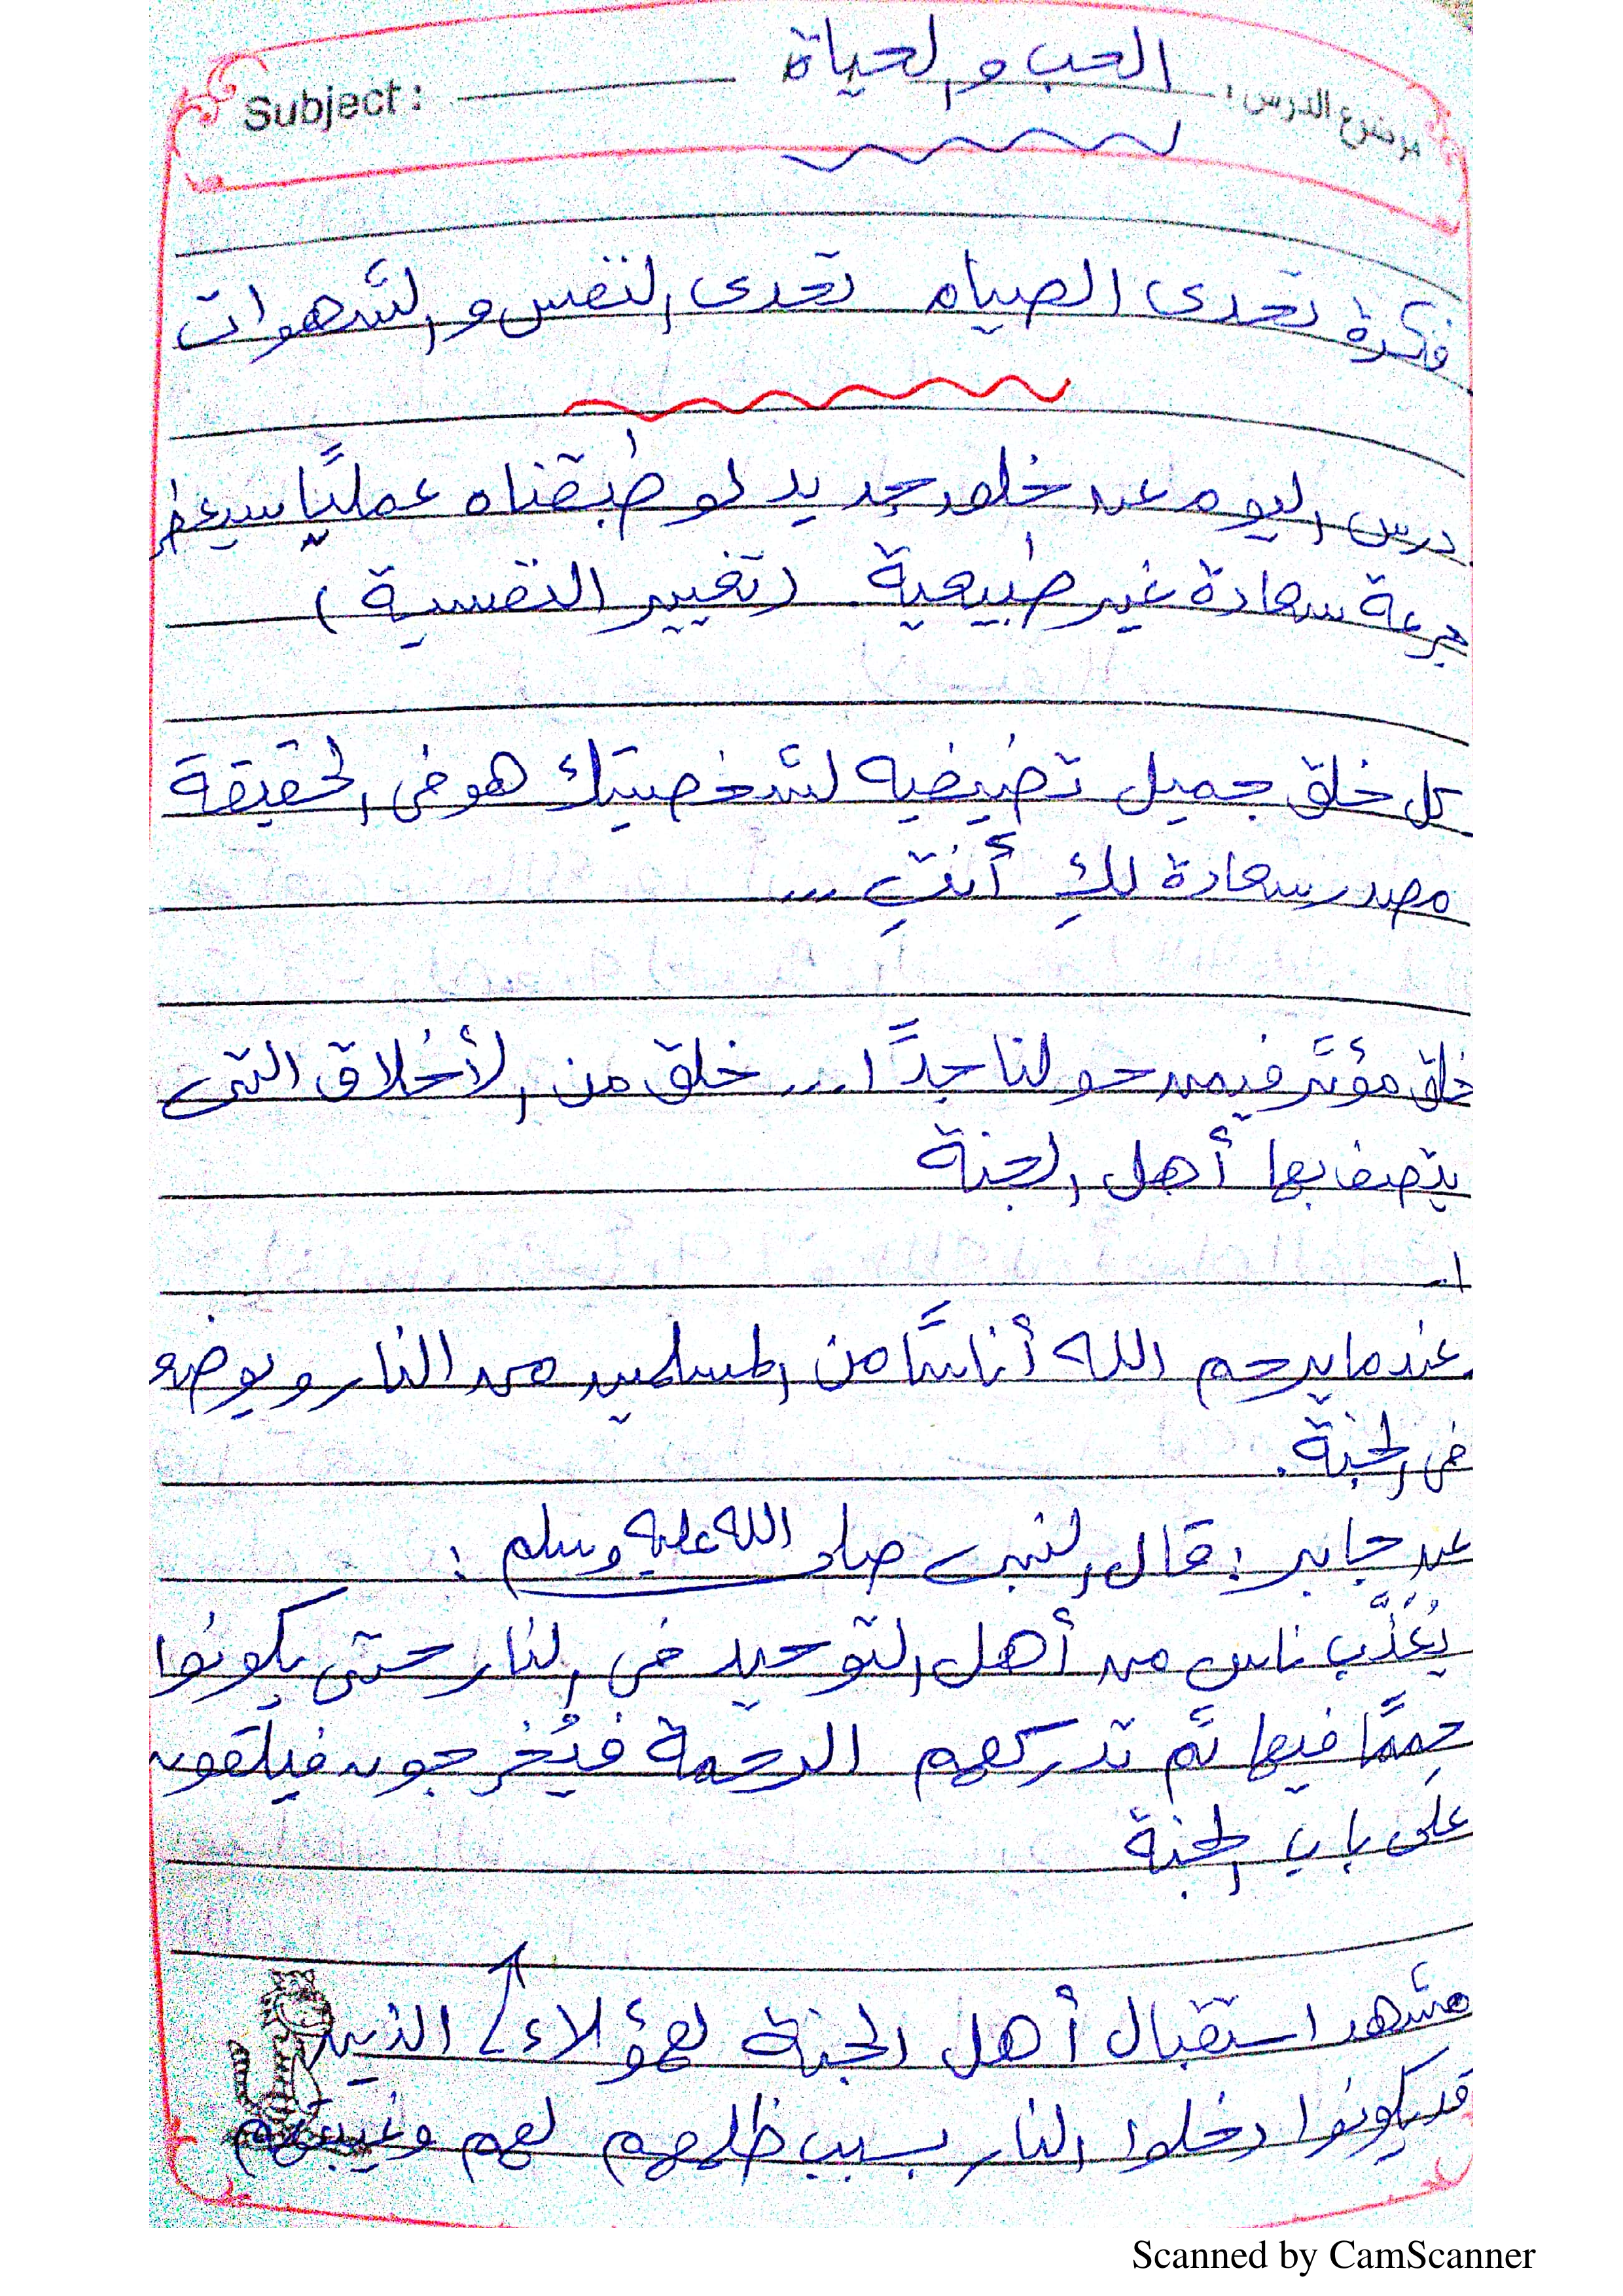 الحب والحياة
موضوع الدرس : Subject :
فكرة تحدى الصيام تحدى النفس والشهوات
درس اليوم عن خلق جديد لو طبقناه عمليًا سيعطى
جرعة سعادة غير طبيعية. (تغيير النفسية)
كل خلق جميل تضيفيه لشخصيتك هو فى الحقيقة
مصدر سعادة لكِ أنتِ ...
خلق مؤثر فيمن حولنا جدًا ... خلق من الأخلاق التى
يتصف بها أهل الجنة
1-
عندما يرحم الله أناسًا من المسلمين من النار ويوضعو
فى الجنة.
عن جابر: قال النبى صلى الله عليه وسلم :
يُعَذَّب ناس من أهل التوحيد فى النار حتى يكونوا
حِممًا فيها ثم تدركهم الرحمة فيُخرجون فيلقون
على باب الجنة
مشهد استقبال أهل الجنة لهؤلاء الذين
قد يكونوا دخلوا النار بسبب ظلمهم لهم وغيبتهم
Scanned by CamScanner